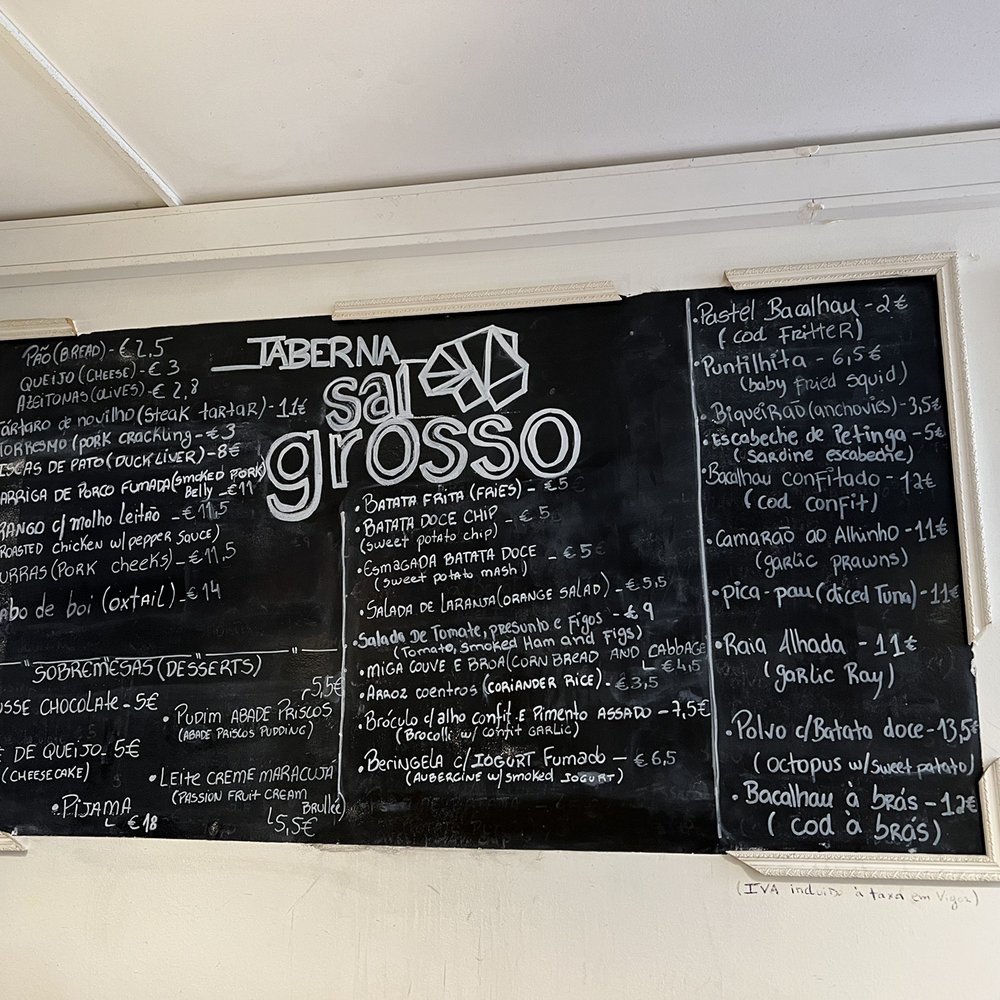 PÃO (BREAD) - €2,5
QUEIJO (CHEESE) - € 3
AZEITONAS (OLIVES) - € 2,8
ártaro de novilho (steak tartar) - 11€
TORRESMO (PORK CRACKLING - € 3
ISCAS DE PATO (DUCK LIVER) - 8€
ARRIGA DE PORCO FUMADA (SMOKED PORK
BELLY - €11
RANGO c/ Molho Leitão - € 11,5
ROASTED CHICKEN W/ PEPPER SAUCE)
URRAS (PORK CHEEKS) - € 11,5
abo de boi (oxtail) - €14
SOBREMESAS (DESSERTS)
USSE CHOCOLATE - 5€
E DE QUEIJO - 5€
(CHEESECAKE)
• PIJAMA
€18
5,5€
• PUDIM ABADE PRISCOS
(ABADE PRISCOS PUDDING)
• LEITE CREME MARACUJÁ
(PASSION FRUIT CREAM
BRULLEE)
5,5€
TABERNA
sal
grosso
• BATATA FRITA (FRIES) - €5
• BATATA DOCE CHIP - € 5
(sweet potato chip)
• ESMAGADA BATATA DOCE - € 5
(sweet potato mash)
• SALADA DE LARANJA (ORANGE SALAD) - € 5,5
• Salada DE Tomate, presunto e Figos - € 9
(Tomato, smoked Ham and Figs)
• MIGA COUVE E BROA (CORN BREAD AND CABBAGE
€ 4,5
• ARROZ COENTROS (CORIANDER RICE) - € 3,5
• BRÓCULO c/ alho confit E Pimento ASSADO - 7,5€
(Brocolli w/ confit GARLIC)
• BERINGELA C/ IOGURT Fumado - € 6,5
(AUBERGINE w/ smoked IOGURT)
• Pastel Bacalhau - 2€
(cod FRITTER)
• Puntilhita - 6,5€
(baby fried squid)
• Biqueirão (anchovies) - 3,5€
• Escabeche de Petinga - 5€
(Sardine escabeche)
• Bacalhau confitado - 12€
(cod confit)
• Camarão ao Alhinho - 11€
(garlic prawns)
• pica-pau (diced Tuna) - 11€
• Raia Alhada - 11€
(garlic Ray)
• Polvo c/ Batata doce - 13,5€
(octopus w/ sweet patato)
• Bacalhau à brás - 12€
(cod à brás)
(IVA incluído à taxa em Vigor)